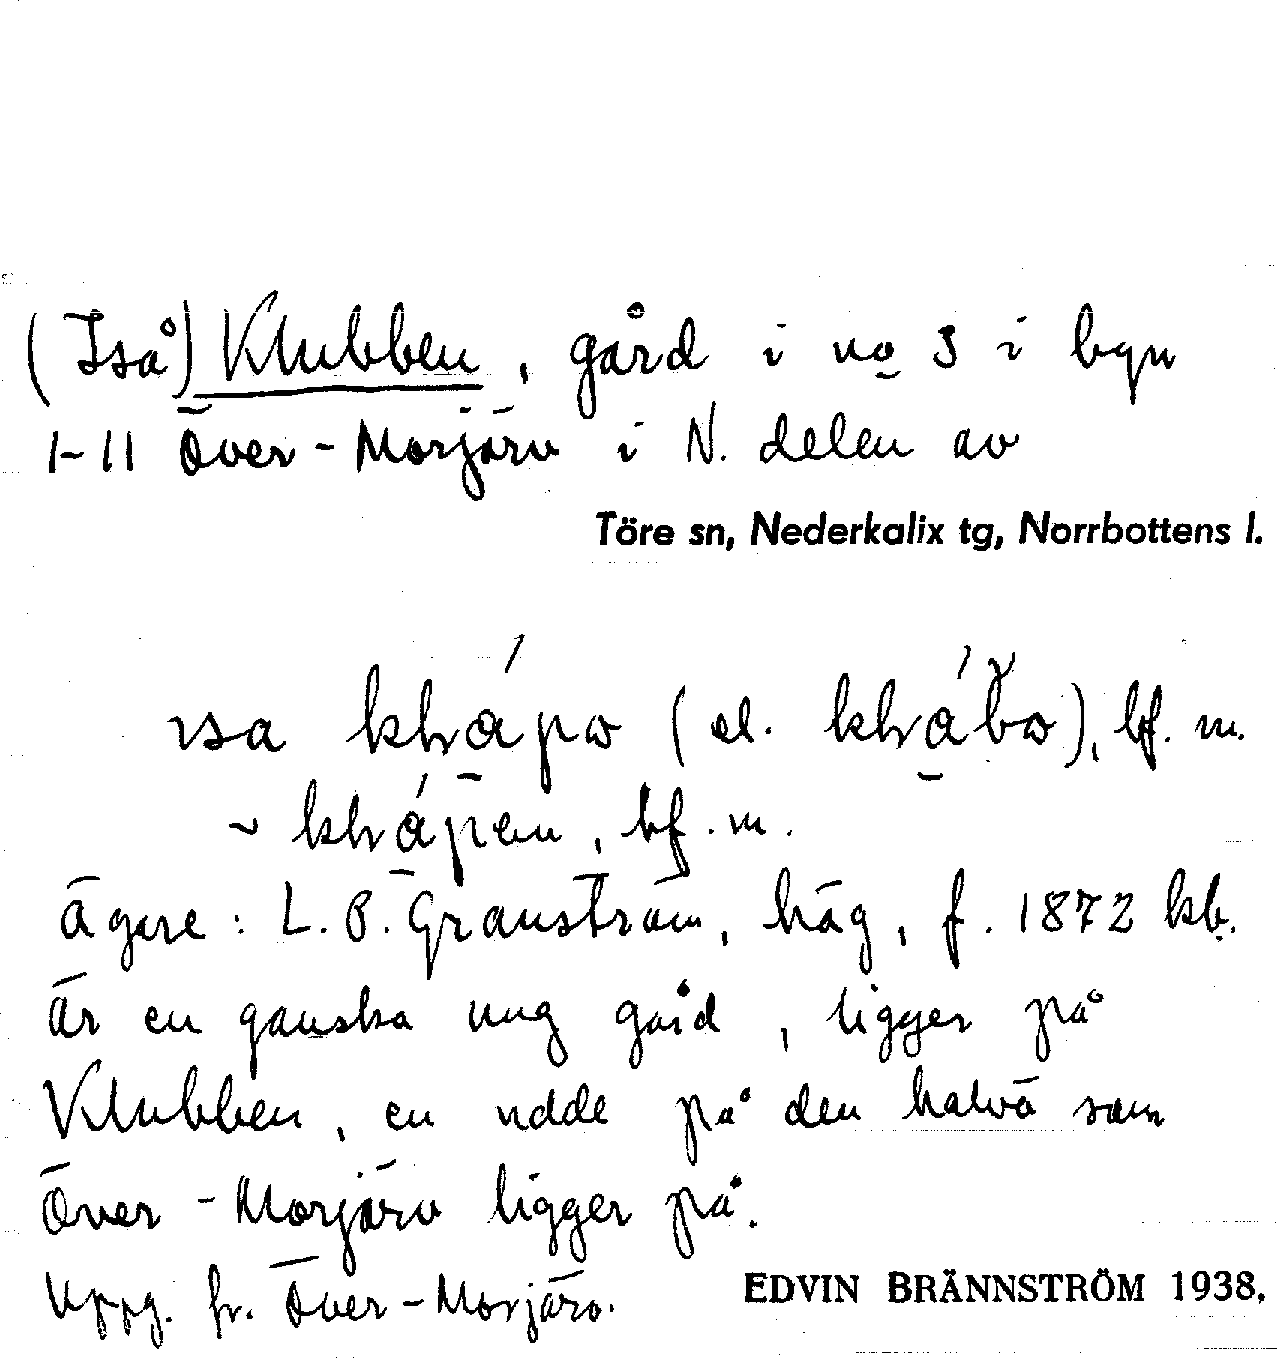 (Iså) Klubben, gård i no 3 i byn
1-11 Över-Morjärv i N. delen av
Töre sn, Nederkalix tg, Norrbottens l.
bf. m.
bf. m.
Ägare: L. P. Granström, häg, f. 1872 kb.
Är en ganska ung gård, ligger på
Klubben, en udde på den halvö som
Över-Morjärv ligger på.
Uppg. fr. Över-Morjärv.
EDVIN BRÄNNSTRÖM 1938.